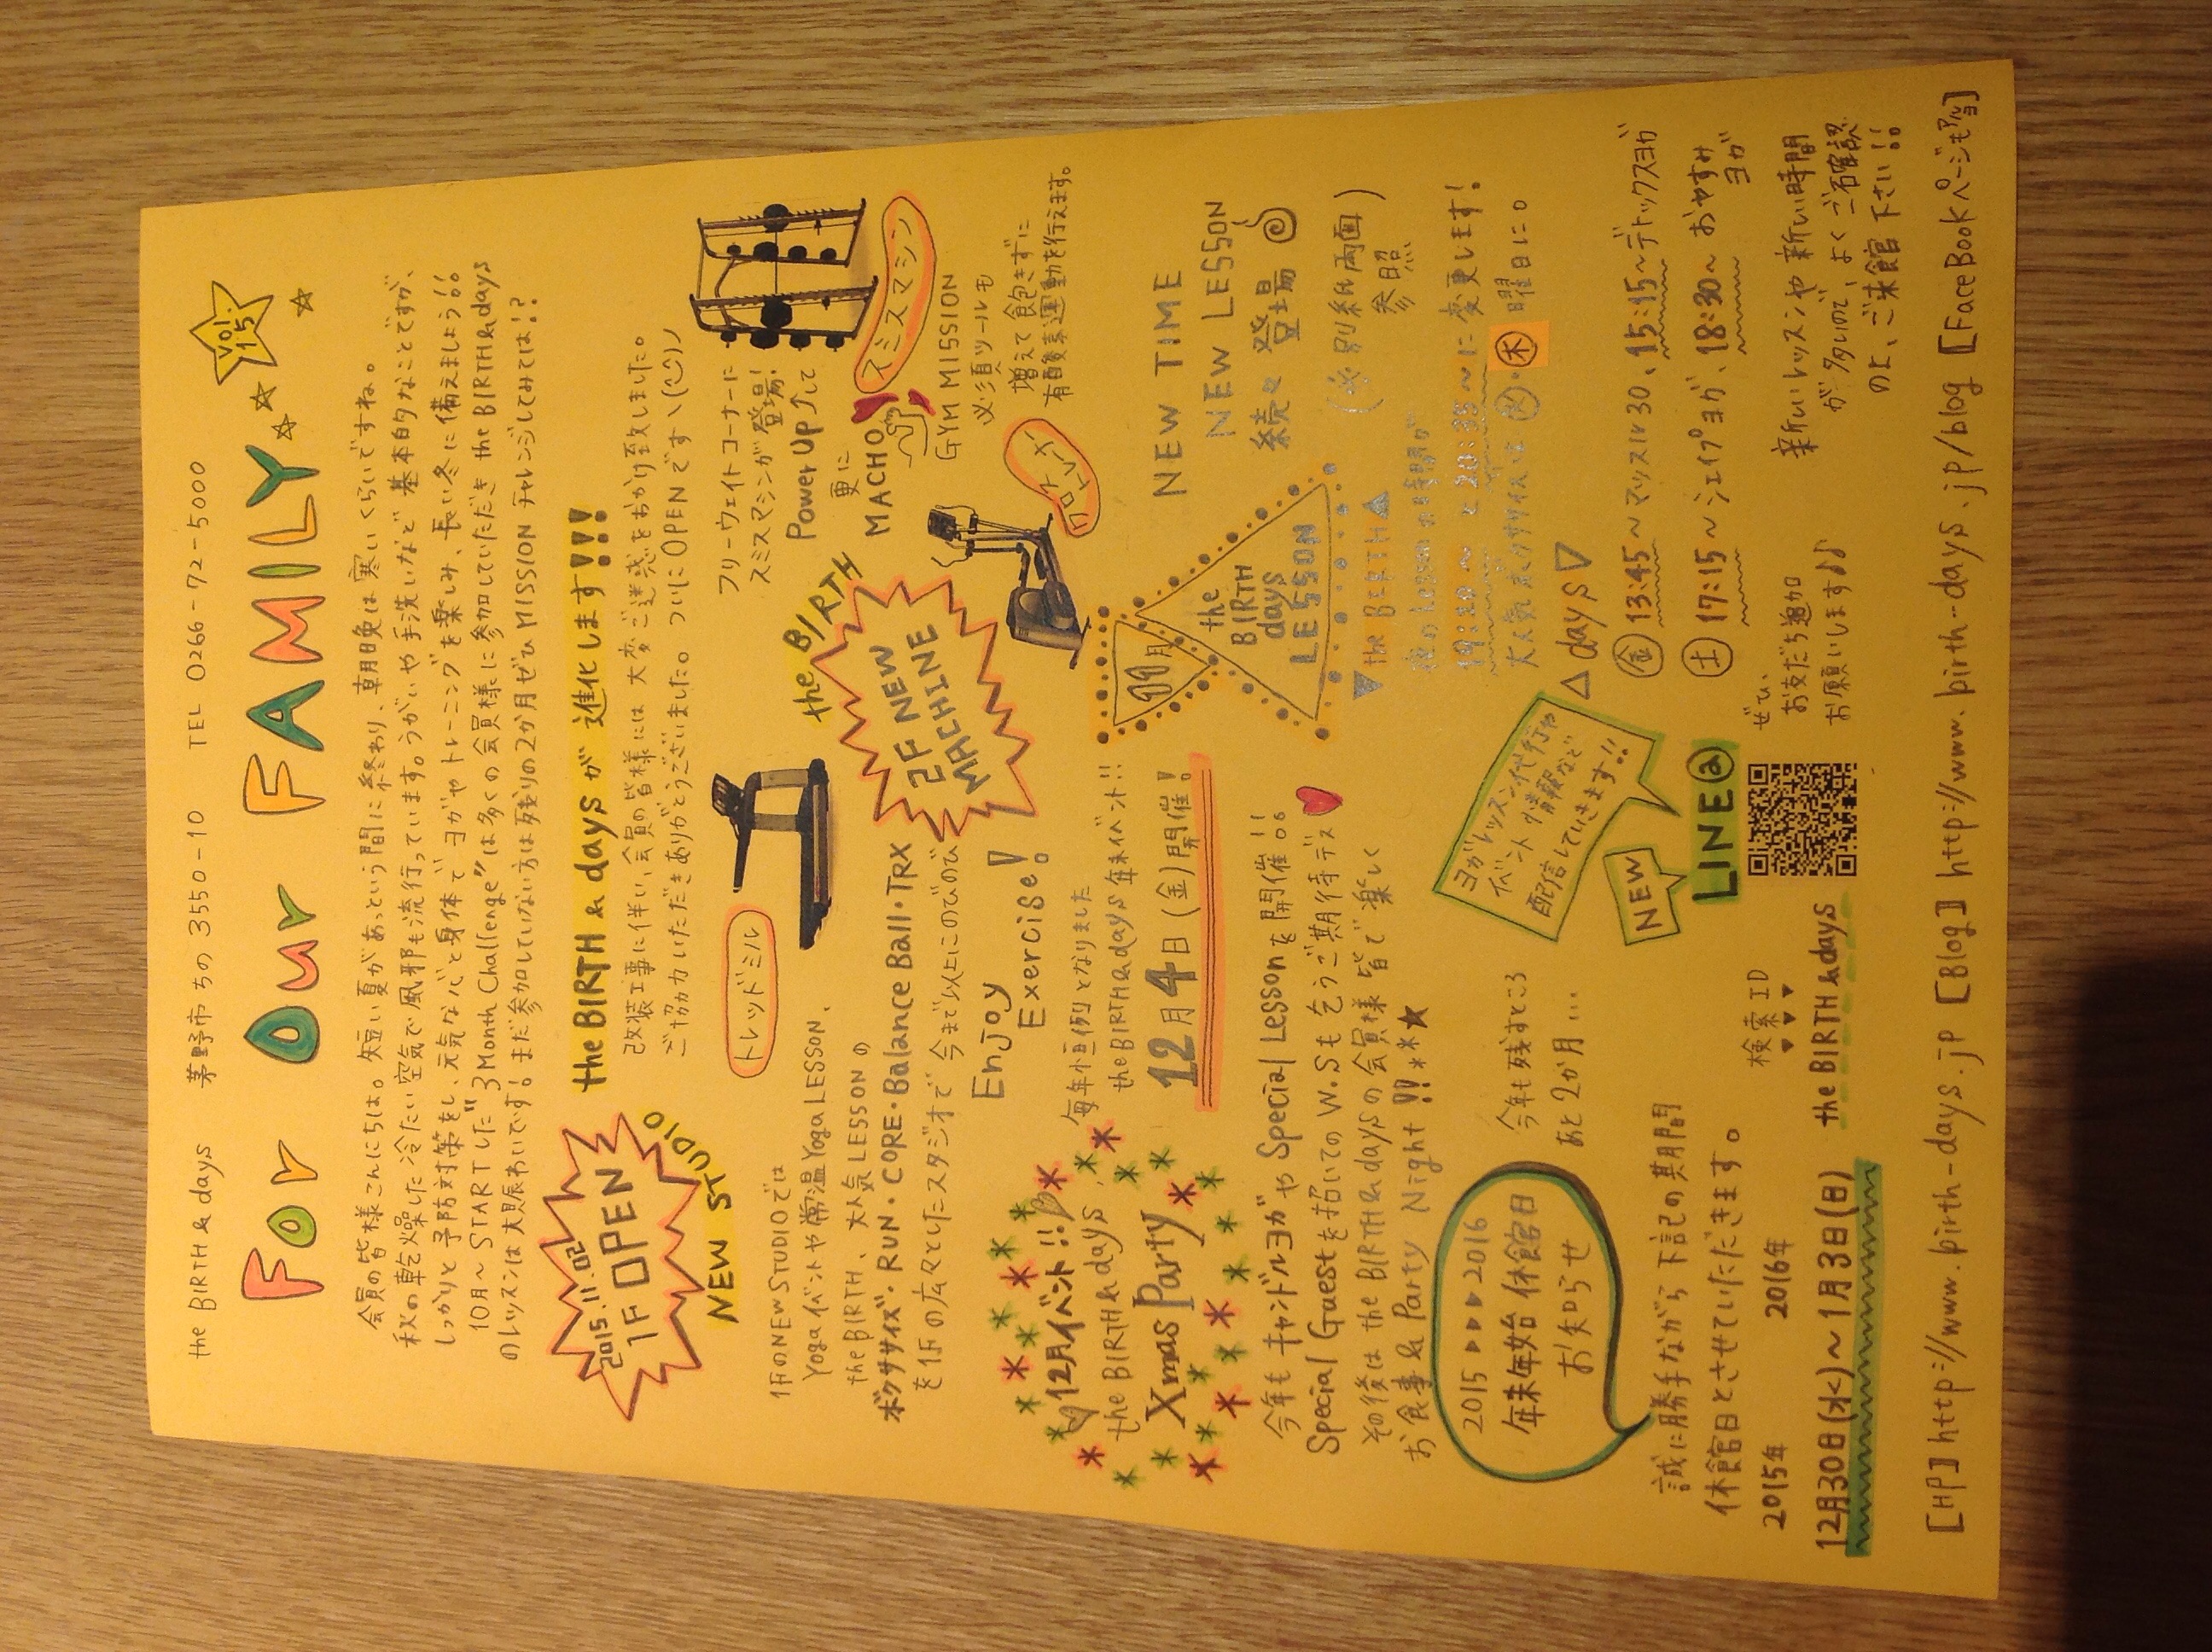 the BIRTH & days 茅野市ちの3550-10 TEL 0266-72-5000
For Our FAMILY
Vol. 15
会員の皆様こんにちは。短い夏があっという間に終わり、朝晩は寒いくらいですね。
秋の乾燥した冷たい空気で風邪も流行っています。うがいや手洗いなど基本的なことですが、
しっかりと予防対策をし、元気な心と身体でヨガやトレーニングを楽しみ、長い冬に備えましょう!!
10月〜STARTした"3Month Challenge"は多くの会員様に参加していただき the BIRTH & days
のレッスンは大賑わいです!まだ参加していない方は残りの2か月ぜひMISSIONチャレンジしてみては!?
2015.11.02
1F OPEN
NEW STUDIO
the BIRTH & days が進化します!!!
改装工事に伴い、会員の皆様には大変ご迷惑をおかけ致しました。
ご協力いただきありがとうございました。ついにOPENです
1FのNEW STUDIOでは
Yogaイベントや常温Yoga LESSON、
the BIRTH、大人気LESSONの
ボクササイズ・RUN・CORE・Balance Ball・TRX
を1Fの広々としたスタジオで今まで以上にのびのび
Enjoy
Exercise!
トレッドミル
the BIRTH
2F NEW
MACHINE
フリーウェイトコーナーに
スミスマシンが登場!
Power Up↑して
更に
MACHO
スミスマシン
GYM MISSION
必須ツールも
増えて飽きずに
有酸素運動を行えます。
12月イベント!!
the BIRTH & days
Xmas Party
毎年恒例となりました
the BIRTH & days 年末イベント!!
12月4日(金)開催!
今年もキャンドルヨガやSpecial Lessonを開催!!
Special Guestを招いてのW.Sも乞うご期待デス
その後は the BIRTH & daysの会員様皆で楽しく
お食事 & Party Night!!
11月
the
BIRTH
days
LESSON
NEW TIME
NEW LESSON
続々登場
(必別紙両面
参照)
▼the BIRTH▲
夜のLessonお時間が
に変更します!
大人気ボクササイズは
・木曜日に。
△days▽
金 13:45〜マッスル30、15:15〜デトックスヨガ
土 17:15〜シェイプヨガ、18:30〜おやすみ
ヨガ
新しいレッスンや新しい時間
が多いので、よくご確認
の上、ご来館下さい!!
2015▶▶▶▶2016
年末年始休館日
お知らせ
今年も残すところ
あと2か月…
誠に勝手ながら下記の期間
休館日とさせていただきます。
2015年 2016年
12月30日(水)〜1月3日(日)
ヨガレッスン代行や
イベント情報など
配信していきます!!
NEW
LINE@
検索ID
▼▼▼
the BIRTH & days
ぜひ、
お友だち追加
お願いします♪♪
[HP] http://www.birth-days.jp [Blog] http://www.birth-days.jp/blog [FaceBookページも]